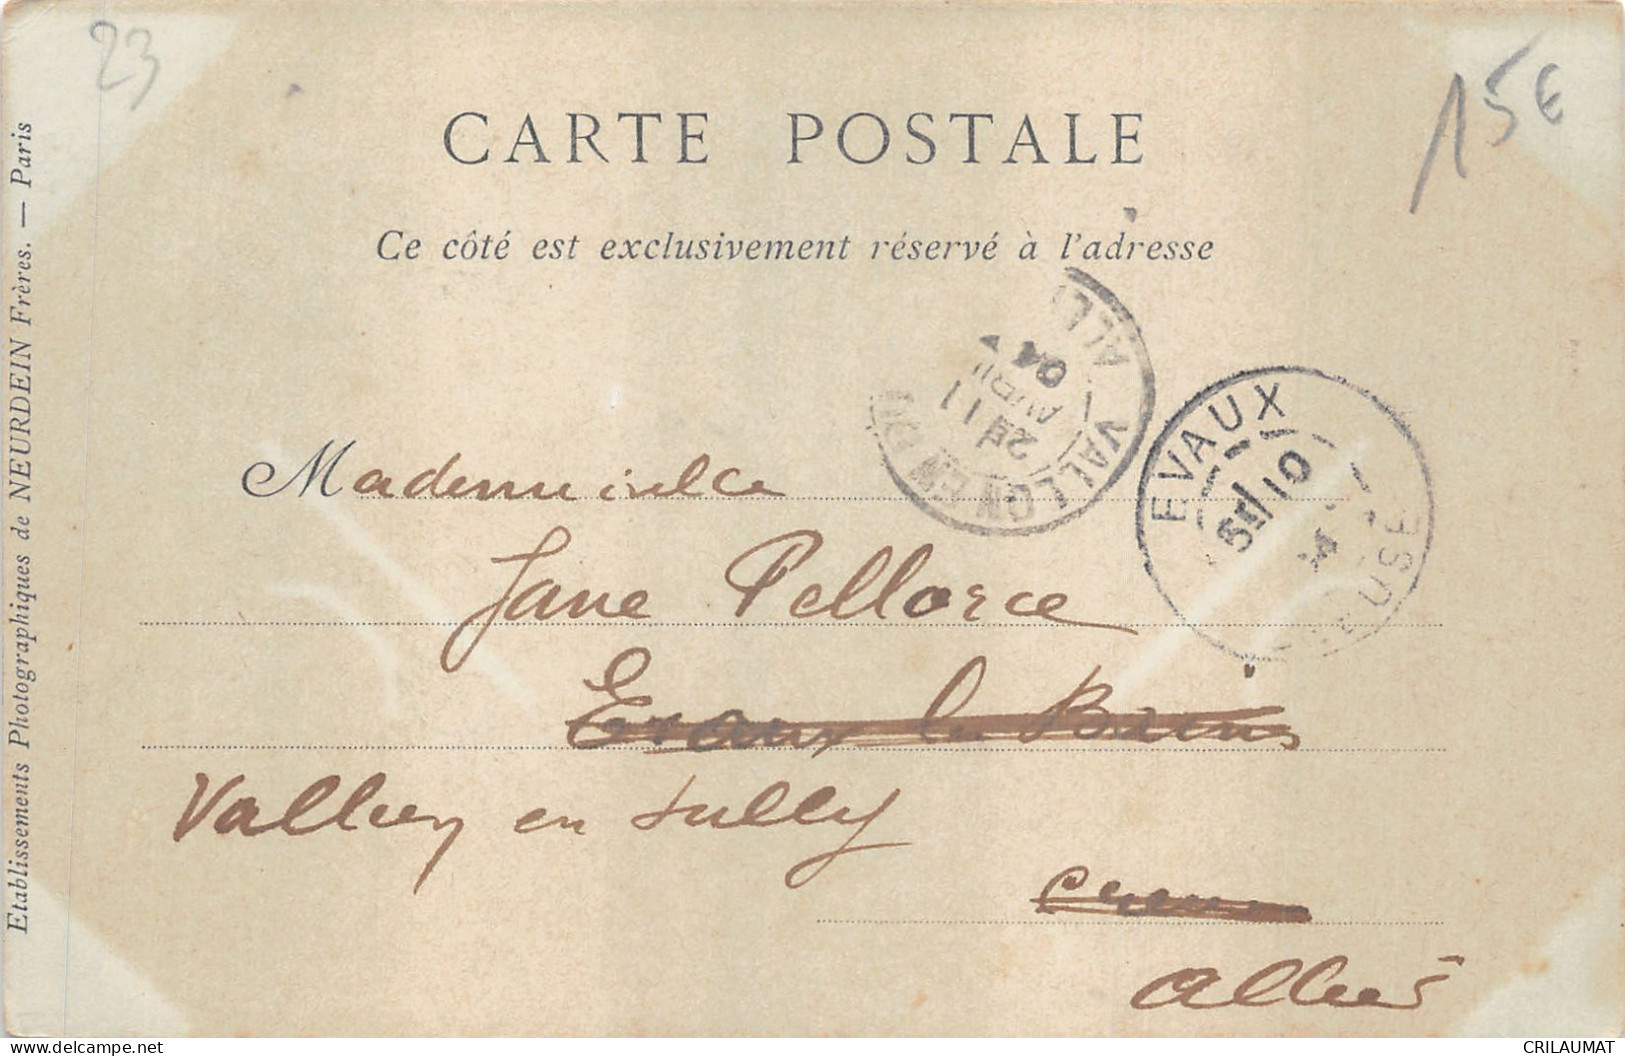 23
15€
CARTE POSTALE
Ce côté est exclusivement réservé à l'adresse
Etablissements Photographiques de NEURDEIN Frères. — Paris
VALLON EN ALLI
11
AVRIL
04
EVAUX
10
EUSE
Mademoiselle
Jane Pellorce
Evaux les Bains
Vallon en Sully
Creuse
Allier
CRILAUMAT
delcampe.net